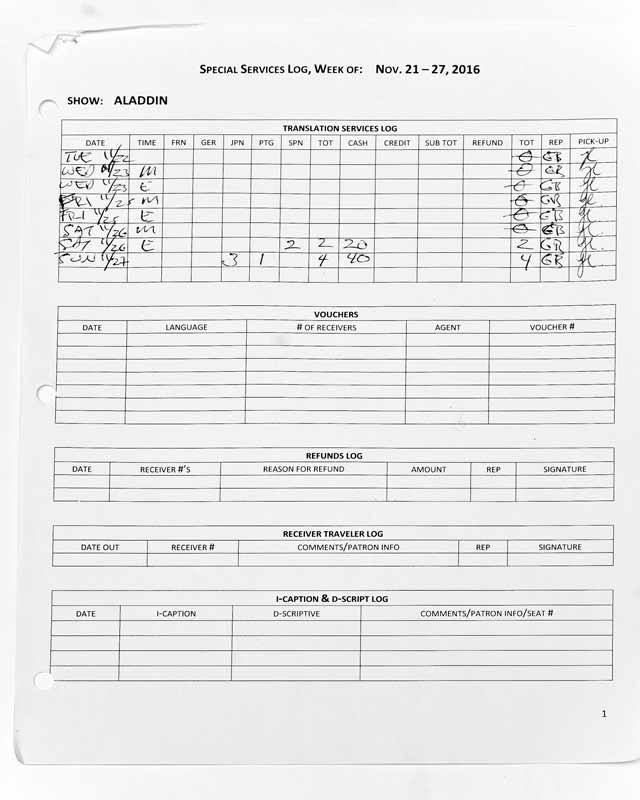 SPECIAL SERVICES LOG, WEEK OF: NOV. 21 – 27, 2016
SHOW: ALADDIN
TRANSLATION SERVICES LOG
DATE TIME FRN GER JPN PTG SPN TOT CASH CREDIT SUB TOT REFUND TOT REP PICK-UP
TUE 11/22 0 GB
WED 11/23 M 0 GB
WED 11/23 E 0 GB
FRI 11/25 M 0 GB
FRI 11/25 E 0 GB
SAT 11/26 M 0 GB
SAT 11/26 E 2 2 20 2 GB
SUN 11/27 3 1 4 40 4 GB
VOUCHERS
DATE LANGUAGE # OF RECEIVERS AGENT VOUCHER #
REFUNDS LOG
DATE RECEIVER #'S REASON FOR REFUND AMOUNT REP SIGNATURE
RECEIVER TRAVELER LOG
DATE OUT RECEIVER # COMMENTS/PATRON INFO REP SIGNATURE
I-CAPTION & D-SCRIPT LOG
DATE I-CAPTION D-SCRIPTIVE COMMENTS/PATRON INFO/SEAT #
1